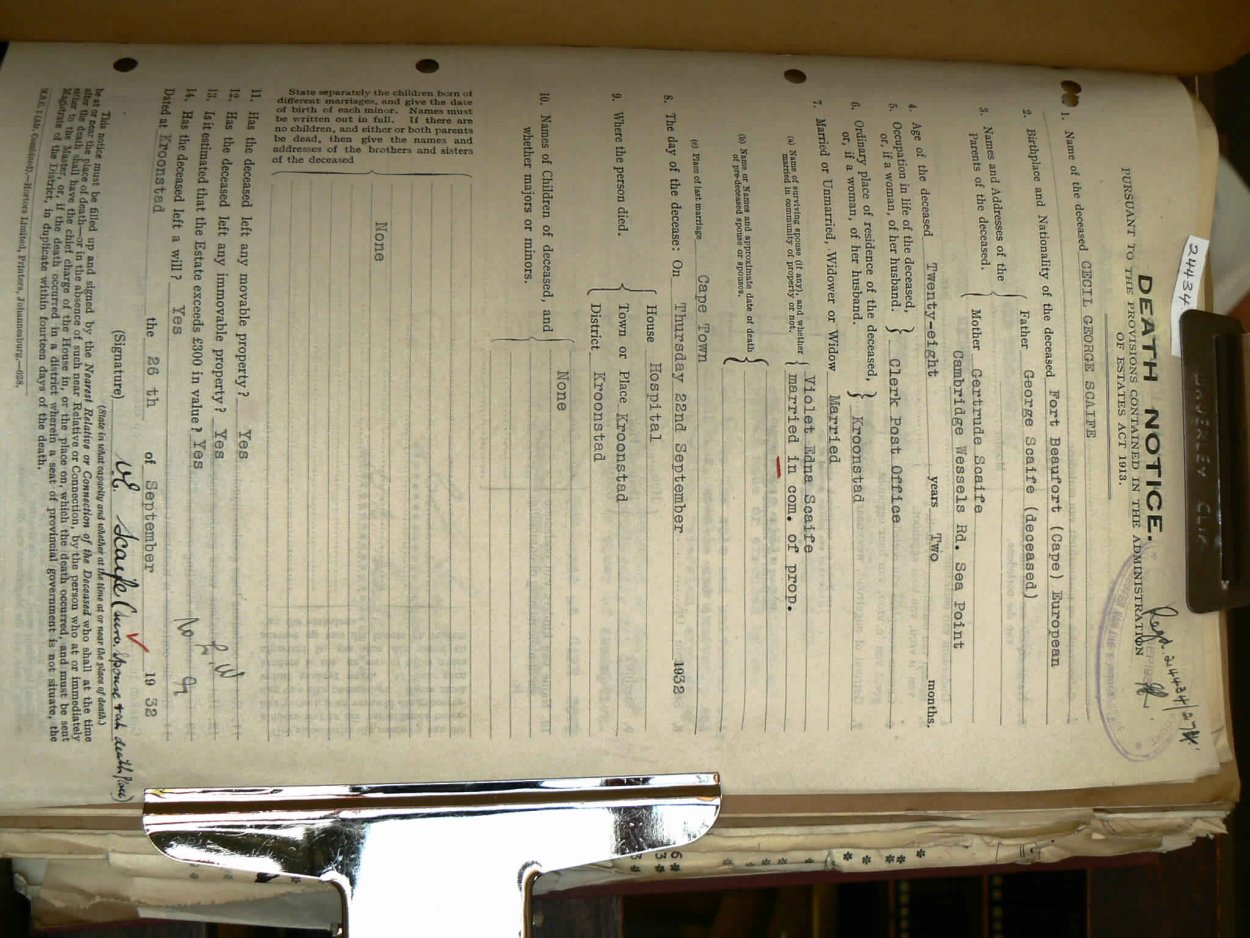 24434
WAVERLEY CLIP
Regd. 24434/27
DEATH NOTICE.
PURSUANT TO THE PROVISIONS CONTAINED IN THE ADMINISTRATION
OF ESTATES ACT 1913.
1. Name of the deceased CECIL GEORGE SCAIFE
2. Birthplace and Nationality of the deceased Fort Beaufort (Cape) European
3. Names and Addresses of the Parents of the deceased.
Father George Scaife (deceased)
Mother Gertrude Scaife
Cambridge Wessels Rd. Sea Point
4. Age of the deceased Twenty-eight years Two months.
5. Occupation in life of the deceased,
or, if a woman, of her husband. Clerk Post Office
6. Ordinary place of residence of the deceased,
or, if a woman, of her husband. Kroonstad
7. Married or Unmarried, Widower or Widow Married
(a) Name of surviving spouse (if any), and whether
married in community of property or not,
Violet Edna Scaife
married in com. of prop.
(b) Name or Names and approximate date of death
of pre-deceased spouse or spouses.
(c) Place of last marriage Cape Town
8. The day of the decease: On Thursday 22nd September 1932
9. Where the person died.
House Hospital
Town or Place Kroonstad
District Kroonstad
10. Names of Children of deceased, and
whether majors or minors.
None
State separately the children born of
different marriages, and give the date
of birth of each minor. Names must
be written out in full. If there are
no children, and either or both parents
be dead, then give the names and
addresses of the brothers and sisters
of the deceased
None
11. Has the deceased left any movable property? Yes
12. Has the deceased left any immovable property? Yes
13. Is it estimated that the Estate exceeds £300 in value? Yes
14. Has the deceased left a will? Yes
Dated at Kroonstad the 26 th of September 19 32
(Signature) V.E. Scaife (Surv. spouse & at death place)
(State in what capacity and whether at the time at or near the place of death.)
This notice must be filled up and signed by the Nearest Relative or Connection of the Deceased who shall at the time
be at or near the place of death—or in the absence of such near Relative or Connection, by the person who at or immediately
after the death shall have the chief charge of the House in, or the place on, which the death occurred, and must be sent
either to the Master, or, if the death occurred in a district wherein a seat of provincial government is not situate, the
Magistrate of the District, in duplicate within fourteen days of the death.
Horters Limited, Printers, Johannesburg.